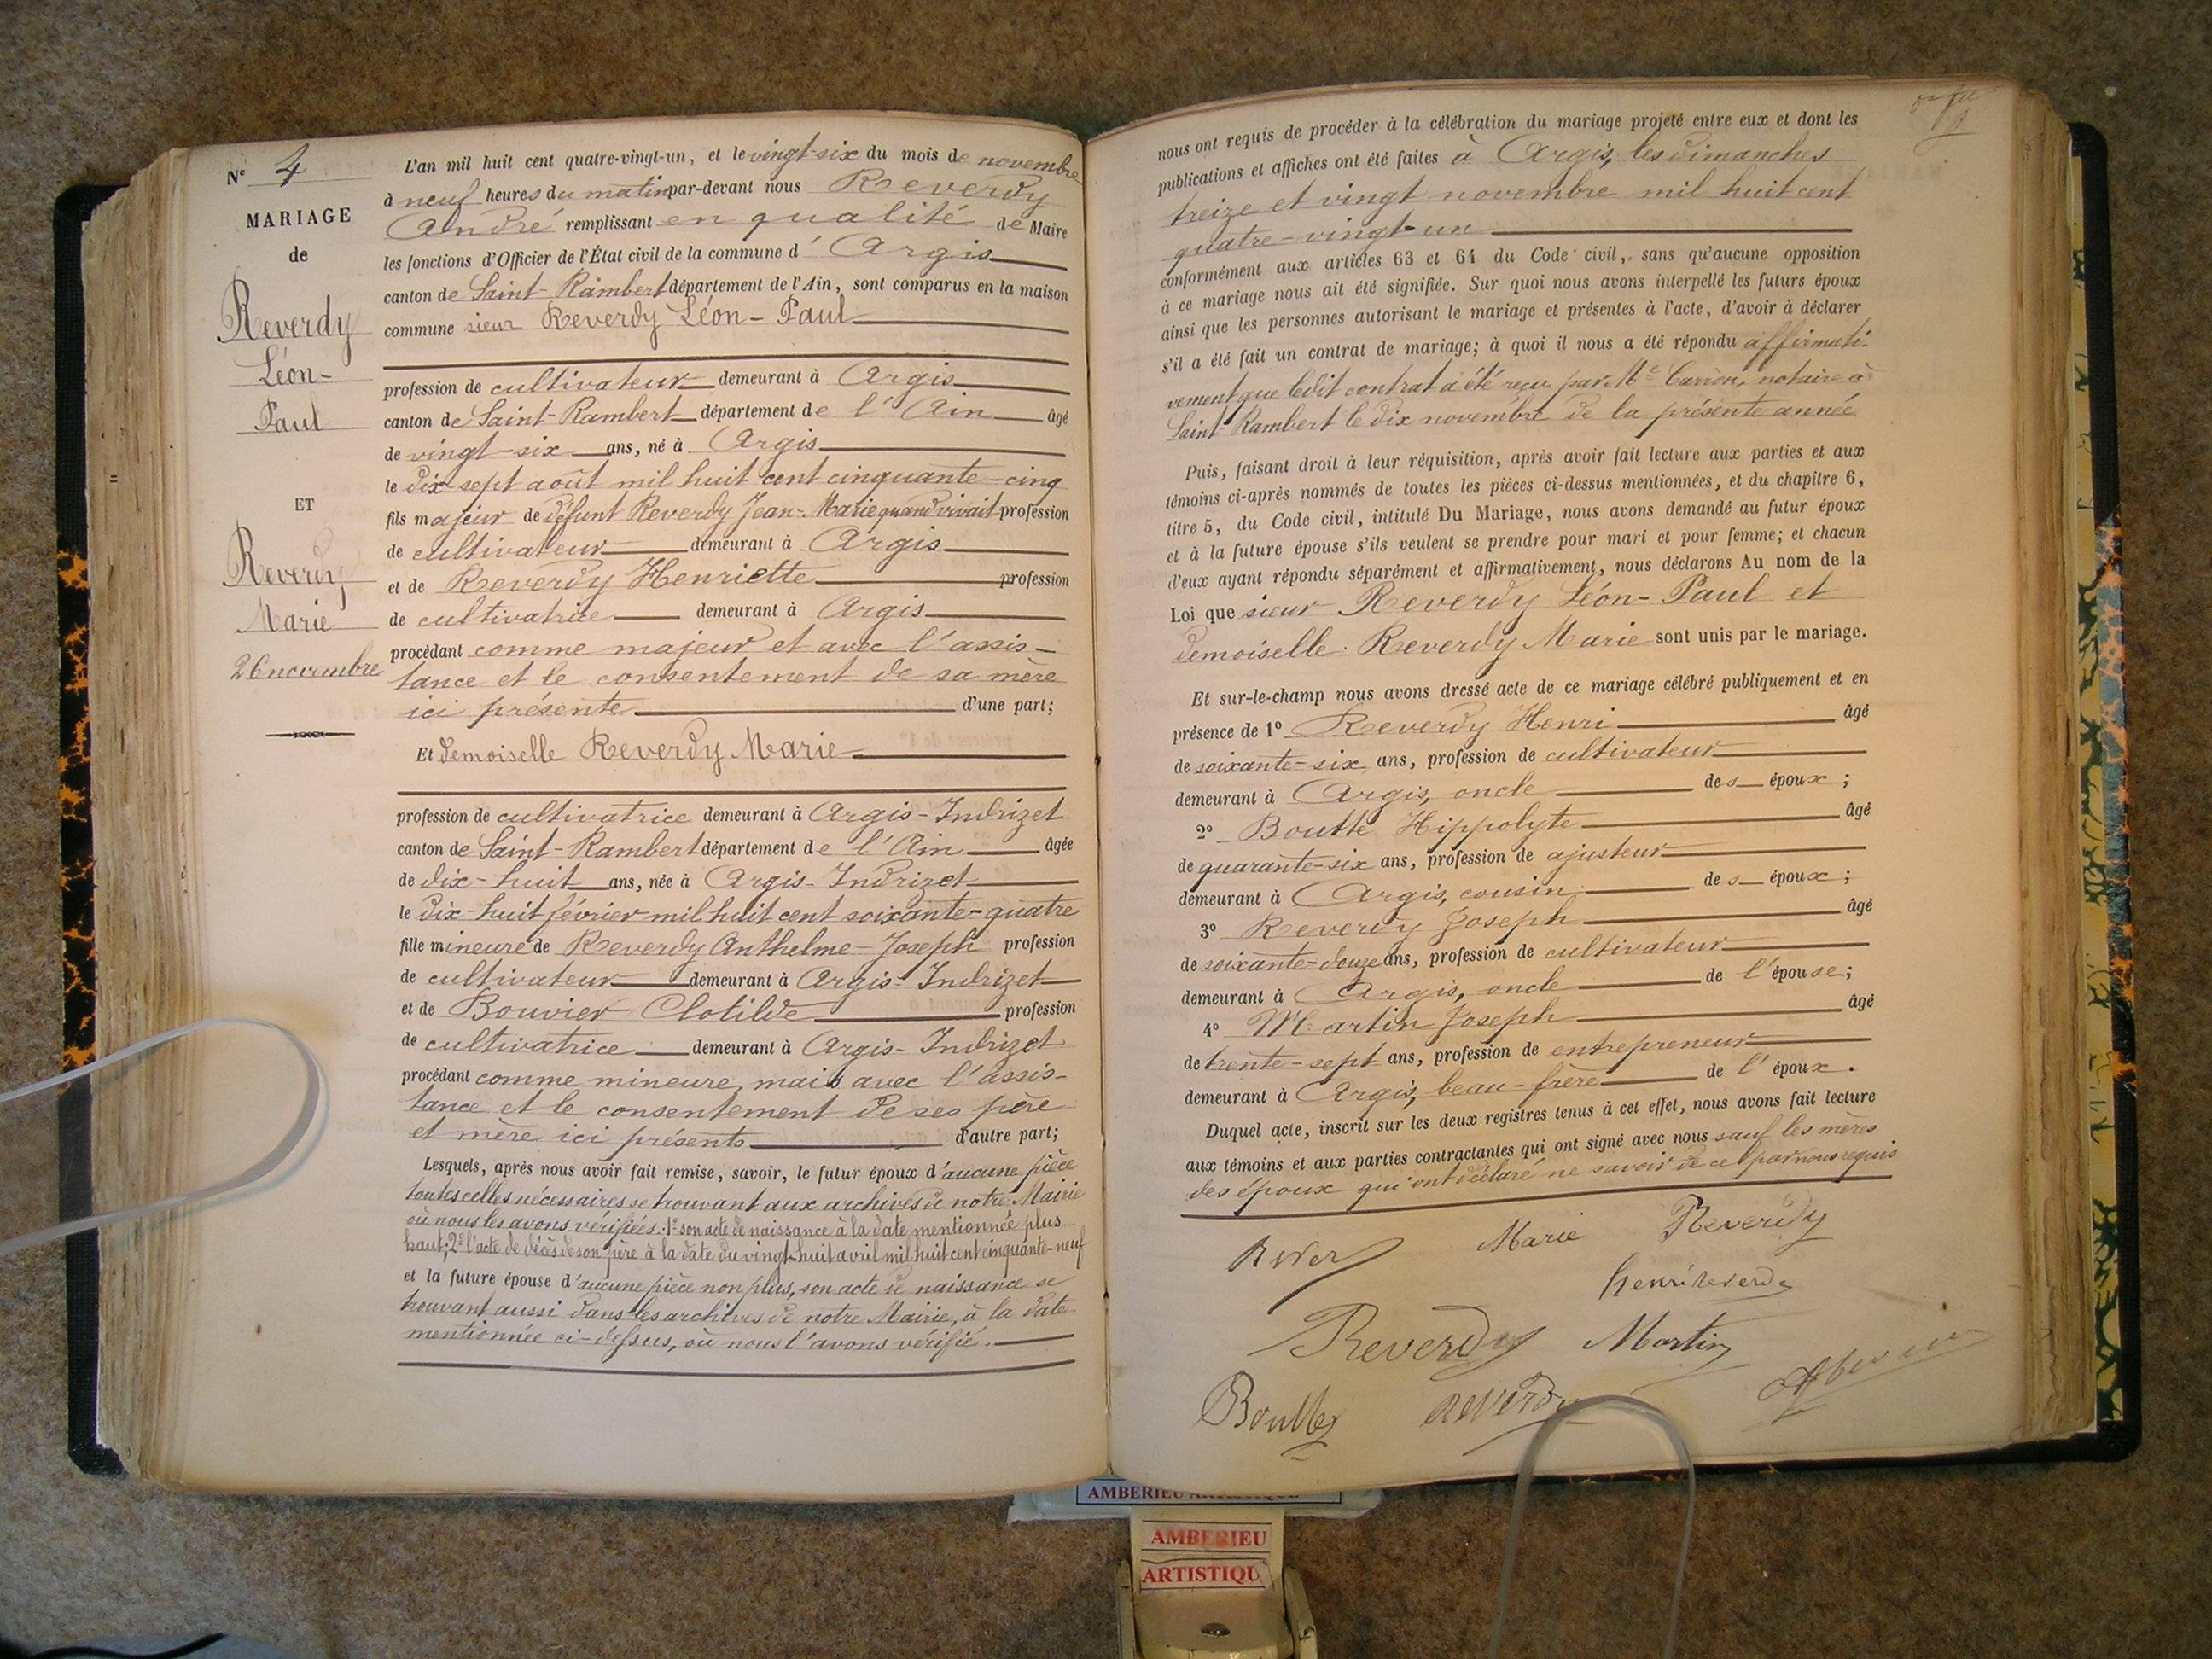 N° 4
MARIAGE
de
Reverdy
Léon-
Paul
ET
Reverdy
Marie
26 novembre
L'an mil huit cent quatre-vingt-un, et le vingt-six du mois de novembre
à neuf heures du matin par-devant nous Reverdy
André remplissant en qualité de Maire
les fonctions d'Officier de l'État civil de la commune d' Argis
canton de Saint-Rambert département de l'Ain, sont comparus en la maison
commune sieur Reverdy Léon-Paul
profession de cultivateur demeurant à Argis
canton de Saint-Rambert département de l'Ain âgé
de vingt-six ans, né à Argis
le dix sept août mil huit cent cinquante-cinq
fils majeur de défunt Reverdy Jean-Marie quand vivait profession
de cultivateur demeurant à Argis
et de Reverdy Henriette profession
de cultivatrice demeurant à Argis
procédant comme majeur et avec l'assis-
tance et le consentement de sa mère
ici présente d'une part;
Et demoiselle Reverdy Marie
profession de cultivatrice demeurant à Argis-Indrizet
canton de Saint-Rambert département de l'Ain âgée
de dix-huit ans, née à Argis-Indrizet
le dix-huit février mil huit cent soixante-quatre
fille mineure de Reverdy Anthelme-Joseph profession
de cultivateur demeurant à Argis-Indrizet
et de Bouvier Clotilde profession
de cultivatrice demeurant à Argis-Indrizet
procédant comme mineure, mais avec l'assis-
tance et le consentement de ses père
et mère ici présents d'autre part;
Lesquels, après nous avoir fait remise, savoir, le futur époux d'aucune pièce
toutes celles nécessaires se trouvant aux archives de notre Mairie
où nous les avons vérifiées. 1° son acte de naissance à la date mentionnée plus
haut; 2° l'acte de décès de son père à la date du vingt-huit avril mil huit cent cinquante-neuf
et la future épouse d'aucune pièce non plus, son acte de naissance se
trouvant aussi dans les archives de notre Mairie, à la date
mentionnée ci-dessus, où nous l'avons vérifié.
nous ont requis de procéder à la célébration du mariage projeté entre eux et dont les
publications et affiches ont été faites à Argis, les dimanches
treize et vingt novembre mil huit cent
quatre-vingt-un
conformément aux articles 63 et 64 du Code civil, sans qu'aucune opposition
à ce mariage nous ait été signifiée. Sur quoi nous avons interpellé les futurs époux
ainsi que les personnes autorisant le mariage et présentes à l'acte, d'avoir à déclarer
s'il a été fait un contrat de mariage; à quoi il nous a été répondu affirmati-
vement que ledit contrat a été reçu par Me Carrion, notaire à
Saint-Rambert le dix novembre de la présente année
Puis, faisant droit à leur réquisition, après avoir fait lecture aux parties et aux
témoins ci-après nommés de toutes les pièces ci-dessus mentionnées, et du chapitre 6,
titre 5, du Code civil, intitulé Du Mariage, nous avons demandé au futur époux
et à la future épouse s'ils veulent se prendre pour mari et pour femme; et chacun
d'eux ayant répondu séparément et affirmativement, nous déclarons Au nom de la
Loi que sieur Reverdy Léon-Paul et
demoiselle Reverdy Marie sont unis par le mariage.
Et sur-le-champ nous avons dressé acte de ce mariage célébré publiquement et en
présence de 1° Reverdy Henri âgé
de soixante-six ans, profession de cultivateur
demeurant à Argis, oncle des époux;
2° Boutte Hippolyte âgé
de quarante-six ans, profession de ajusteur
demeurant à Argis, cousin des époux;
3° Reverdy Joseph âgé
de soixante-douze ans, profession de cultivateur
demeurant à Argis, oncle de l'épouse;
4° Martin Joseph âgé
de trente-sept ans, profession de entrepreneur
demeurant à Argis, beau-frère de l'époux.
Duquel acte, inscrit sur les deux registres tenus à cet effet, nous avons fait lecture
aux témoins et aux parties contractantes qui ont signé avec nous sauf les mères
des époux qui ont déclaré ne savoir de ce par nous requis
Marie Reverdy
henri reverdy
Reverdy Martin
Boutte reverdy
AMBERIEU ARTISTIQUE
AMBERIEU
ARTISTIQU